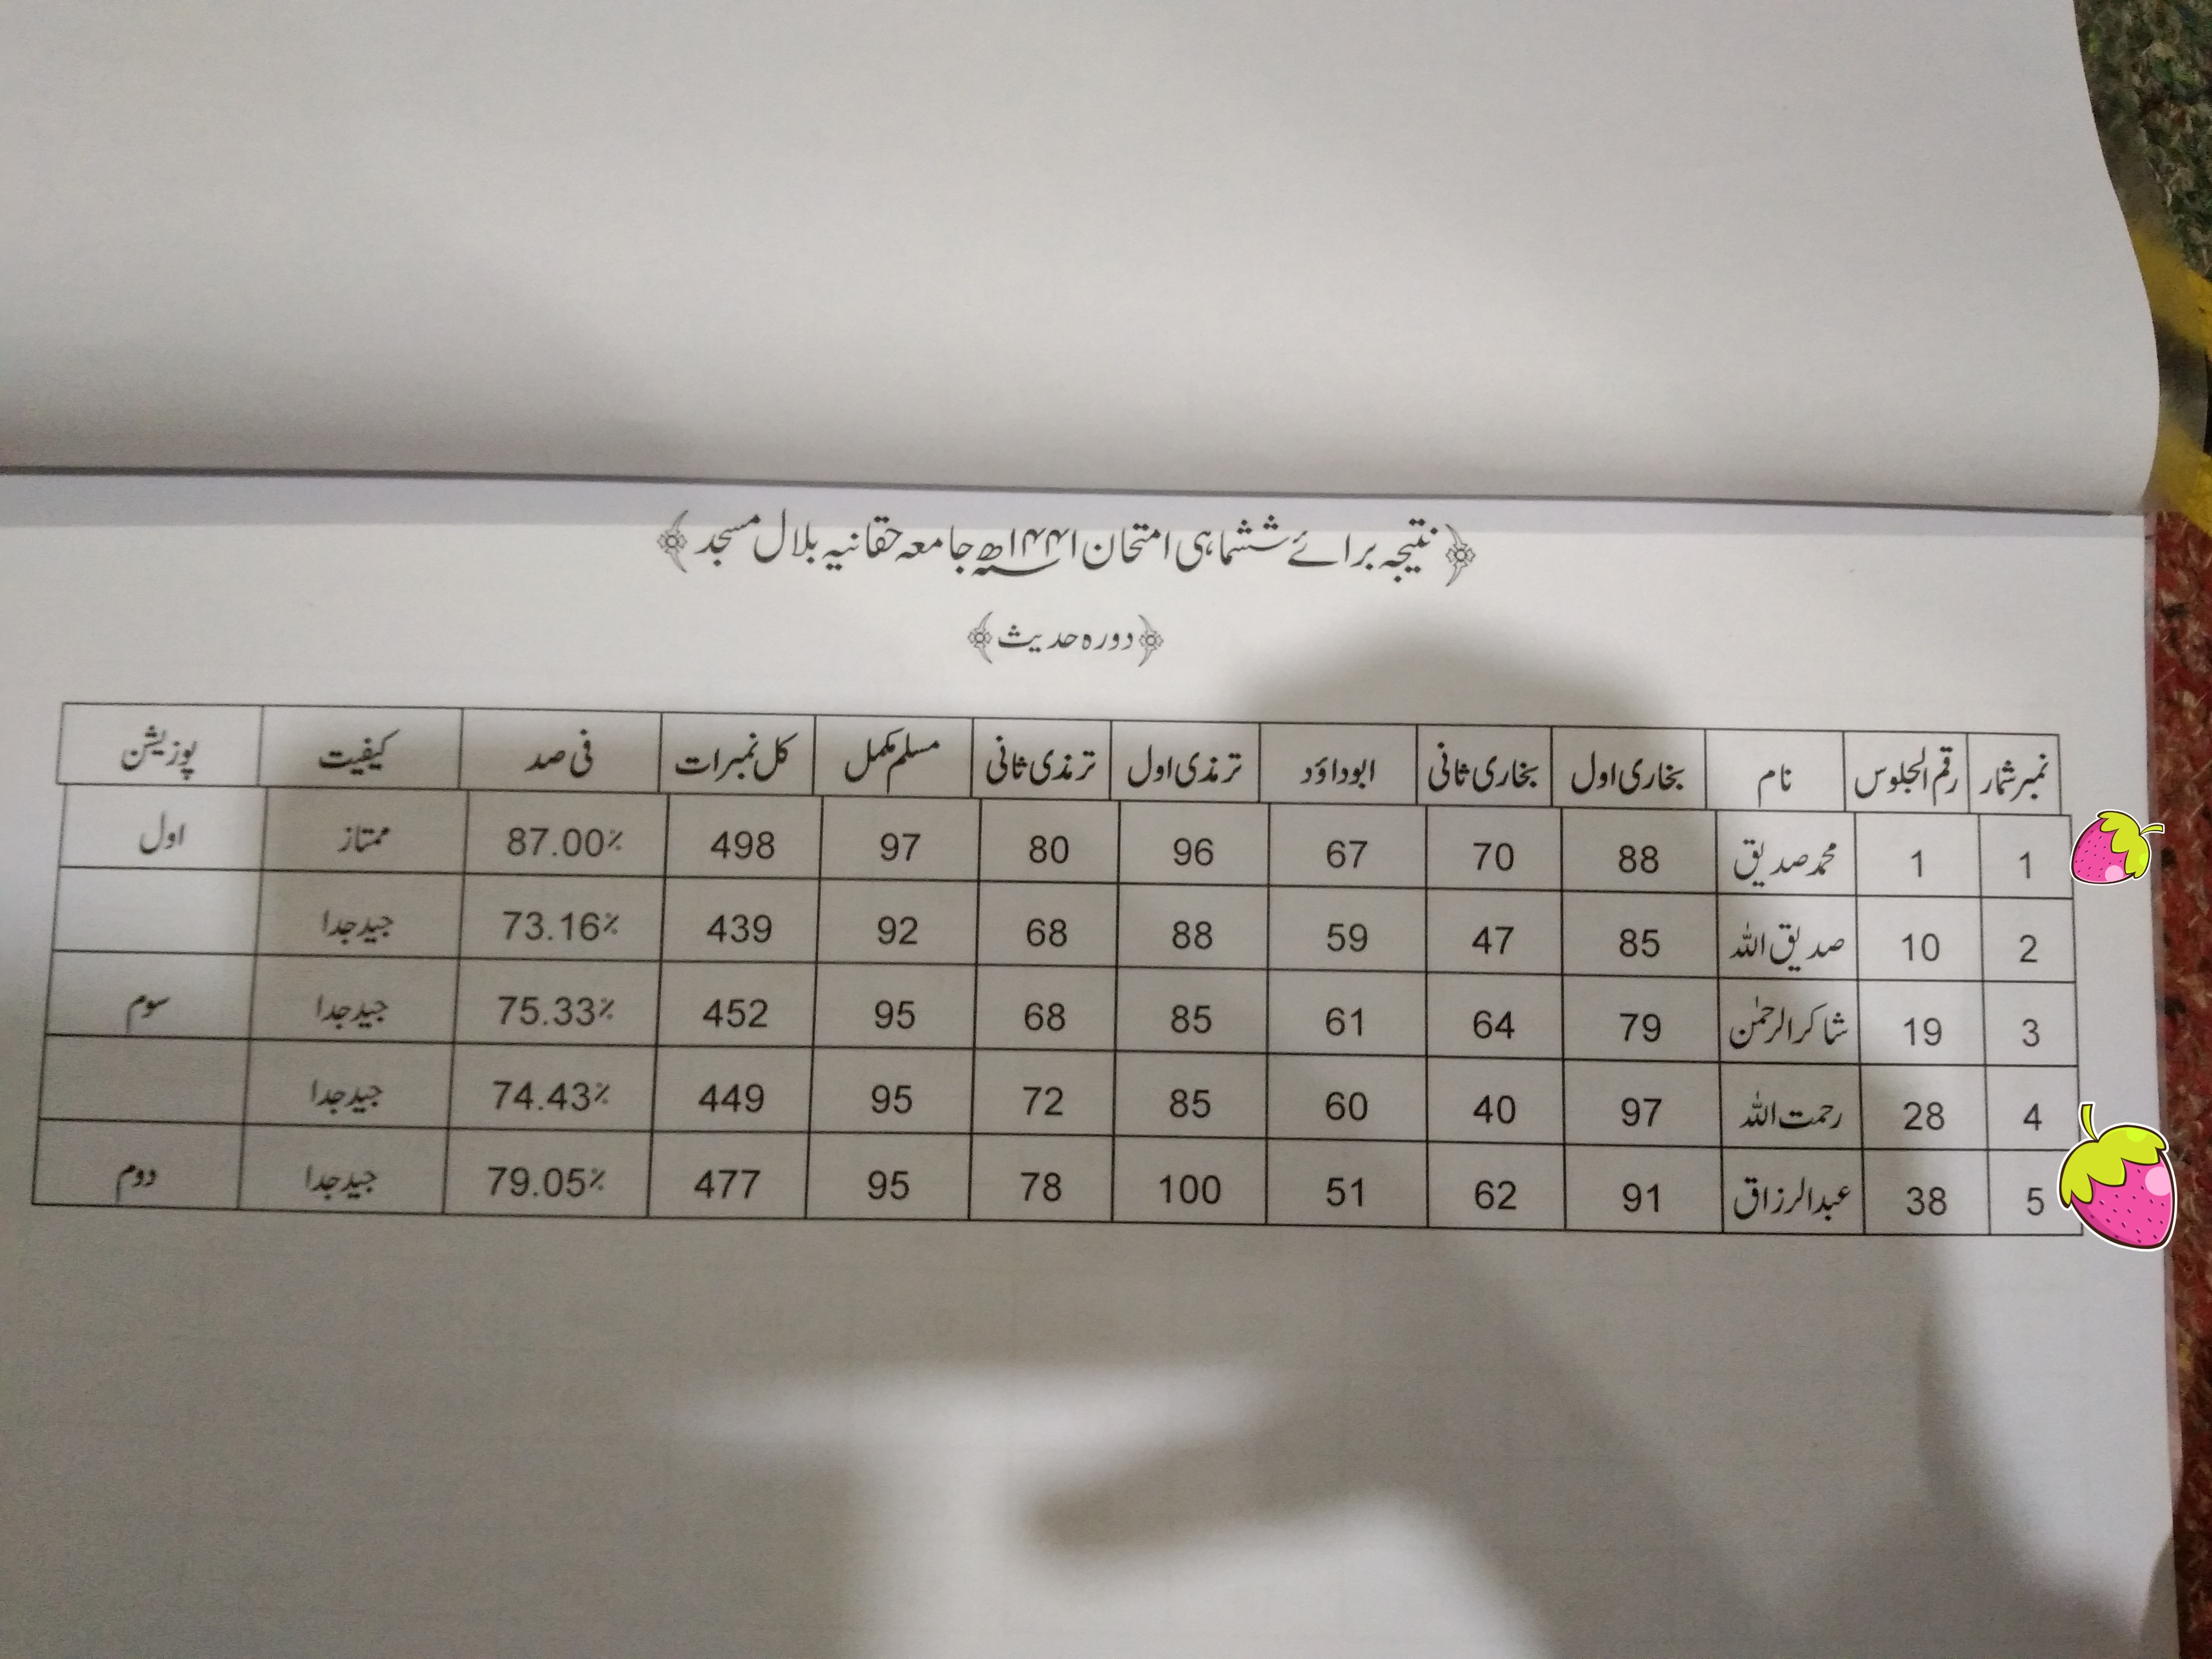 نتیجہ برائے ششماہی امتحان ۱۴۴۱ھ جامعہ حقانیہ بلال مسجد
دورہ حدیث
نمبر شمار رقم الجلوس نام بخاری اول بخاری ثانی ابوداؤد ترمذی اول ترمذی ثانی مسلم مکمل کل نمبرات فی صد کیفیت پوزیشن
1 1 محمد صدیق 88 70 67 96 80 97 498 87.00٪ ممتاز اول
2 10 صدیق اللہ 85 47 59 88 68 92 439 73.16٪ جید جدا
3 19 شاکر الرحمٰن 79 64 61 85 68 95 452 75.33٪ جید جدا سوم
4 28 رحمت اللہ 97 40 60 85 72 95 449 74.43٪ جید جدا
5 38 عبدالرزاق 91 62 51 100 78 95 477 79.05٪ جید جدا دوم